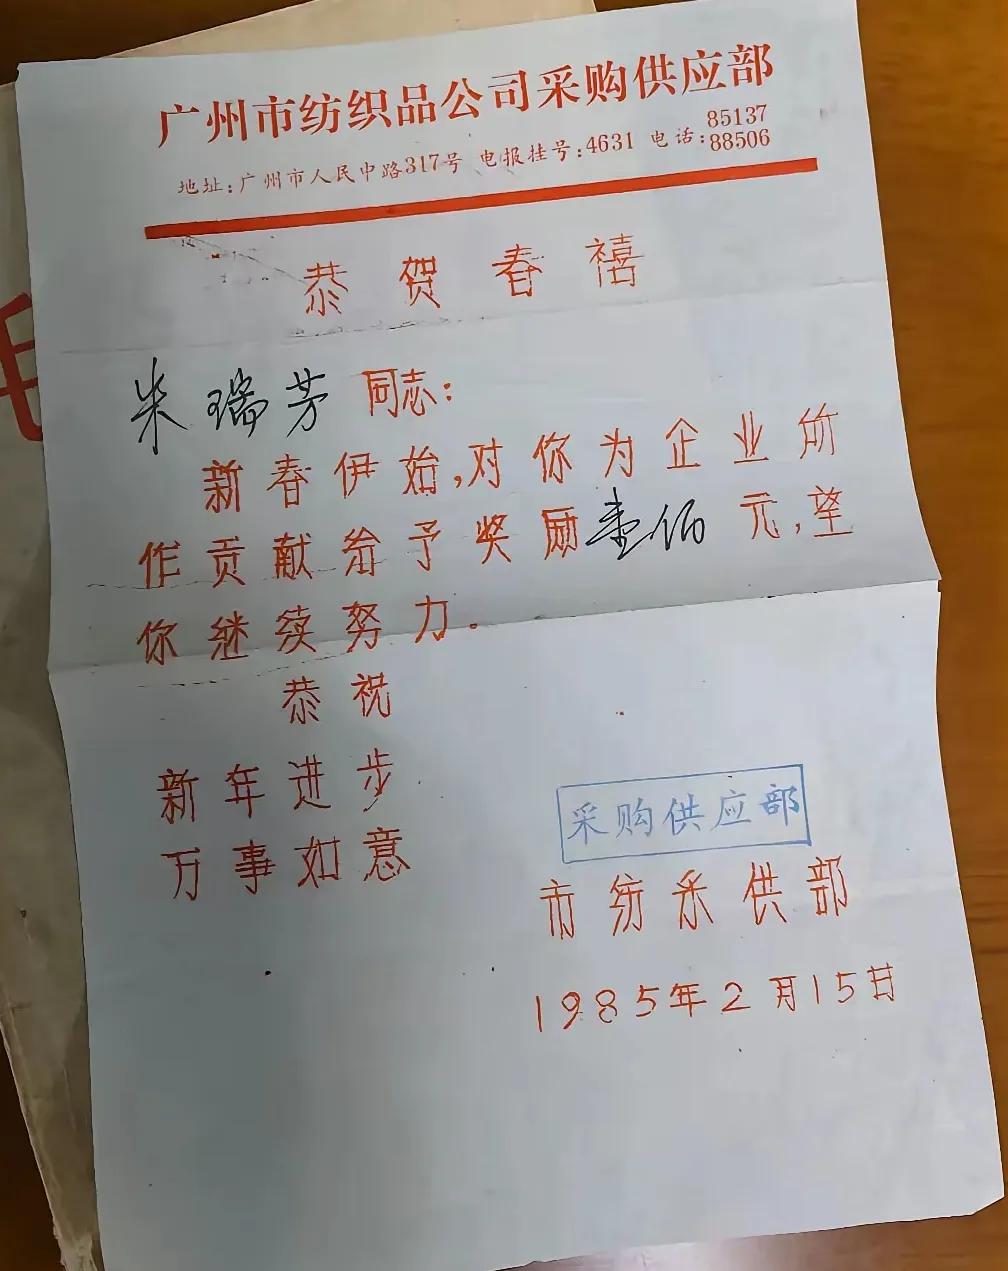 广州市纺织品公司采购供应部
地址:广州市人民中路317号 电报挂号:4631 电话:85137 88506
恭贺春禧
朱瑞芳同志:
新春伊始,对你为企业所
作贡献给予奖励壹佰元,望
你继续努力。
恭祝
新年进步
万事如意
采购供应部
市纺采供部
1985年2月15日